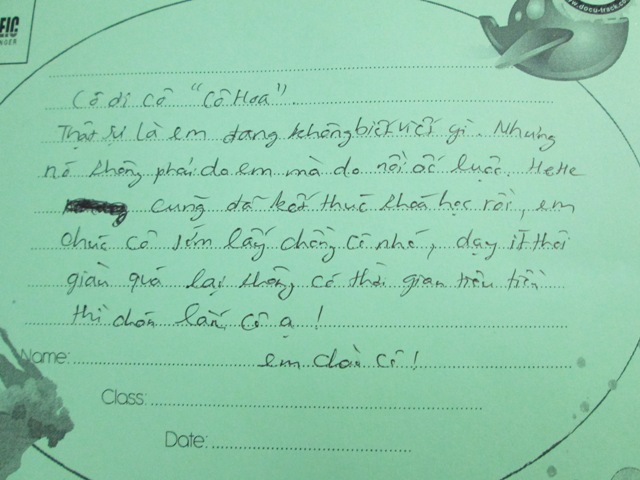 FIC
NGER
www.docu-track.co
Cô ơi cô "Cô Hoa".
Thật sự là em đang không biết viết gì. Nhưng
nó không phải do em mà do nồi ốc luộc. HeHe
cũng đã kết thúc khoá học rồi, em
chúc cô sớm lấy chồng cô nhé, dạy ít thôi
gian quá lại không có thời gian tiêu tiền
thì chán lắm cô ạ!
Name: em chào cô!
Class:
Date: